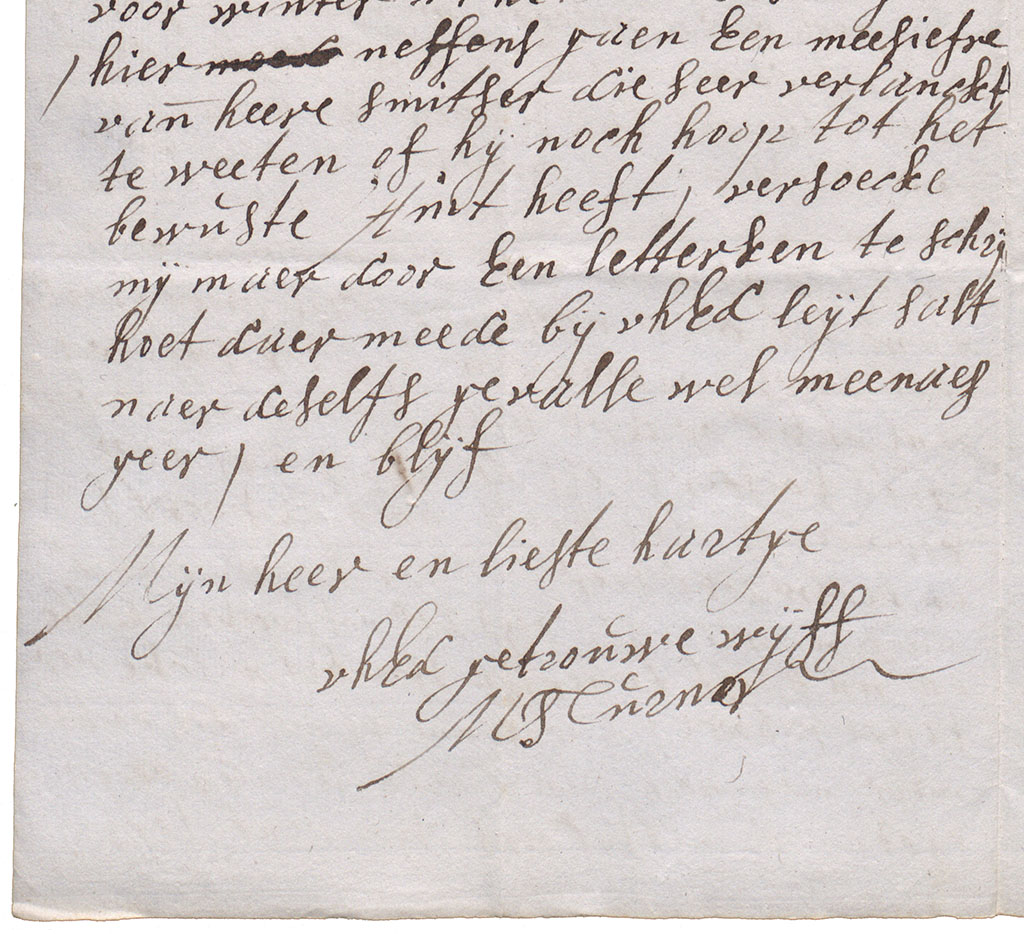 voor winter
/ hier neffens gaen Een meesiefve
van heere smitser die seer verlanckt
te weeten of hij noch hoop tot het
bewuste Amt heeft, versoecke
mij maer door Een letterken te schrij
hoet daer meede bij vhEd leijt salt
naer deselfs gevalle wel meenaes
geer / en blijf
Mijn heer en liefste hartge
vhEd getrouwe wijff
MSCurner